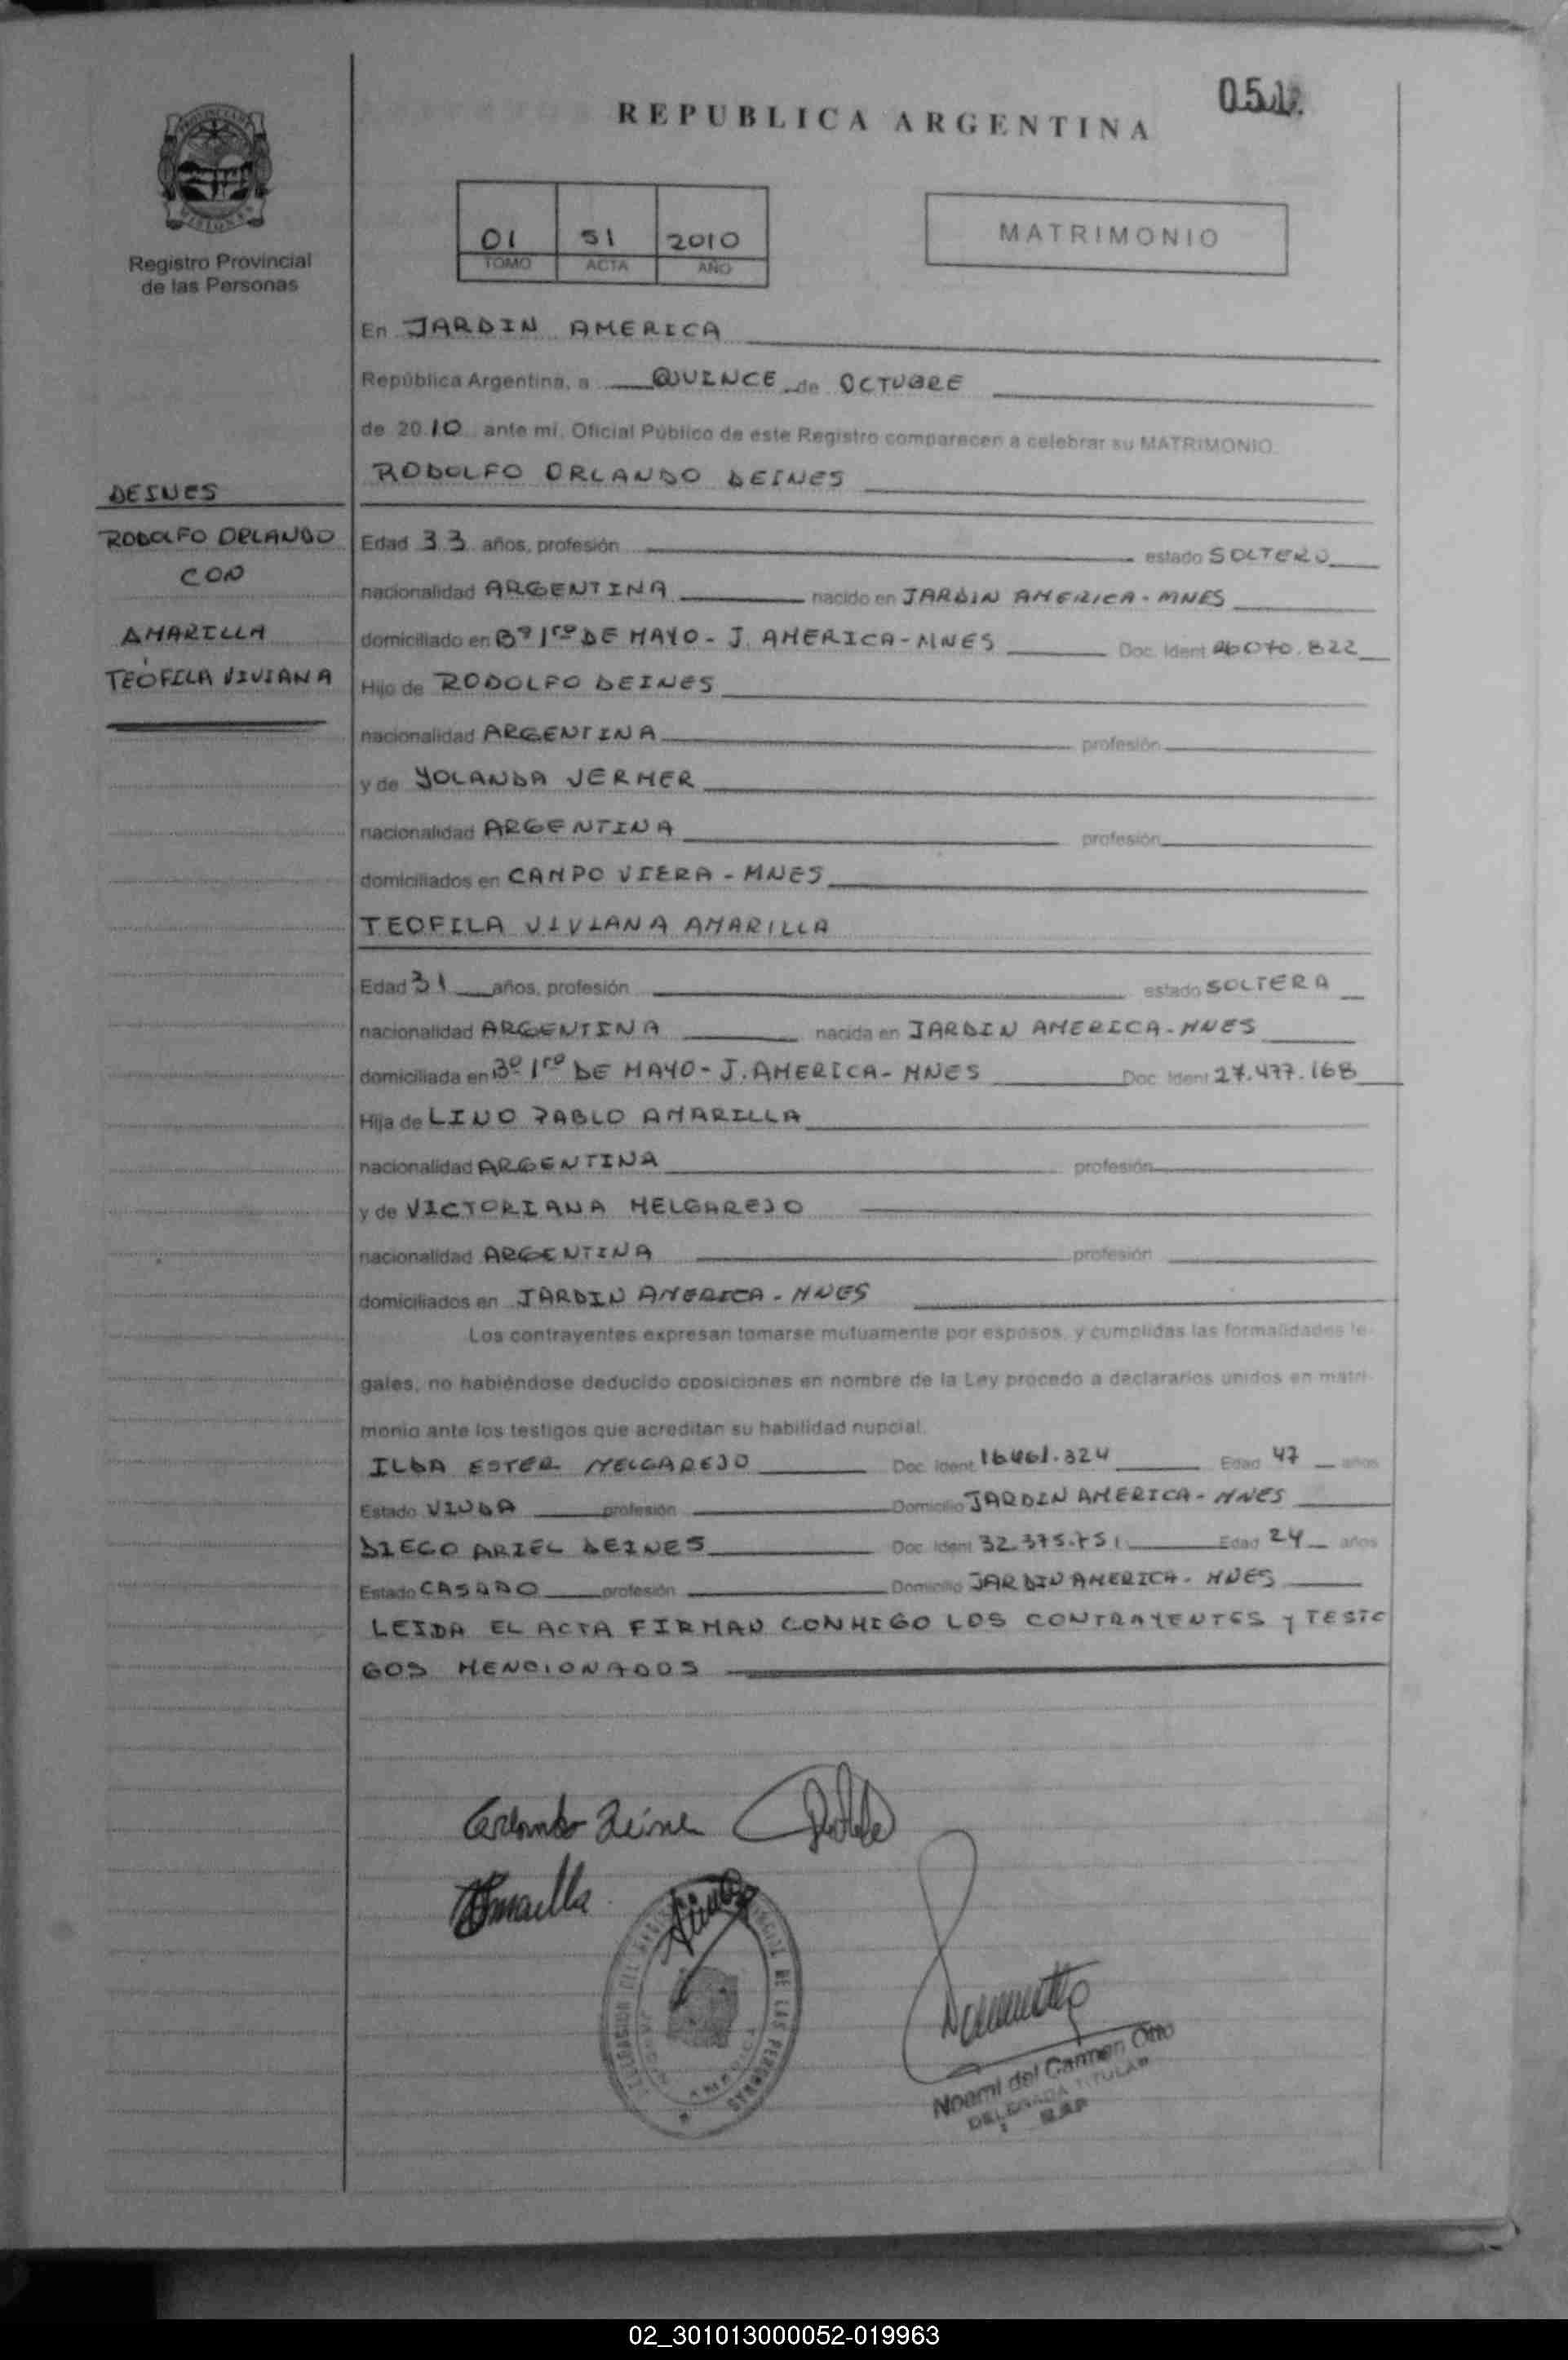 051
REPUBLICA ARGENTINA
01 51 2010
TOMO ACTA AÑO
MATRIMONIO
Registro Provincial
de las Personas
En JARDIN AMERICA
República Argentina, a QUINCE de OCTUBRE
de 2010 ante mi, Oficial Público de este Registro comparecen a celebrar su MATRIMONIO
RODOLFO ORLANDO DEINES
DEINES
RODOLFO ORLANDO
CON
AMARILLA
TEÓFILA VIVIANA
Edad 33 años, profesión estado SOLTERO
nacionalidad ARGENTINA nacido en JARDIN AMERICA - MNES
domiciliado en Bº 1ro DE MAYO - J. AMERICA - MNES Doc. Ident 26070.822
Hijo de RODOLFO DEINES
nacionalidad ARGENTINA profesión
y de YOLANDA VERMER
nacionalidad ARGENTINA profesión
domiciliados en CAMPO VIERA - MNES
TEOFILA VIVIANA AMARILLA
Edad 31 años, profesión estado SOLTERA
nacionalidad ARGENTINA nacida en JARDIN AMERICA - MNES
domiciliada en Bº 1ro DE MAYO - J. AMERICA - MNES Doc. Ident 27.477.168
Hija de LINO PABLO AMARILLA
nacionalidad ARGENTINA profesión
y de VICTORIANA MELGAREJO
nacionalidad ARGENTINA profesión
domiciliados en JARDIN AMERICA - MNES
Los contrayentes expresan tomarse mutuamente por esposos, y cumplidas las formalidades le-
gales, no habiéndose deducido oposiciones en nombre de la Ley procedo a declararlos unidos en matri-
monio ante los testigos que acreditan su habilidad nupcial.
ILDA ESTER MELGAREJO Doc. Ident 16.461.324 Edad 47 años
Estado VIUDA profesión Domicilio JARDIN AMERICA - MNES
DIEGO ARIEL DEINES Doc. Ident 32.375.751 Edad 24 años
Estado CASADO profesión Domicilio JARDIN AMERICA - MNES
LEIDA EL ACTA FIRMAN CONMIGO LOS CONTRAYENTES y TESTI
GOS MENCIONADOS
Amarilla
Noemi del Carmen Otto
DELEGADA TITULAR
02_301013000052-019963